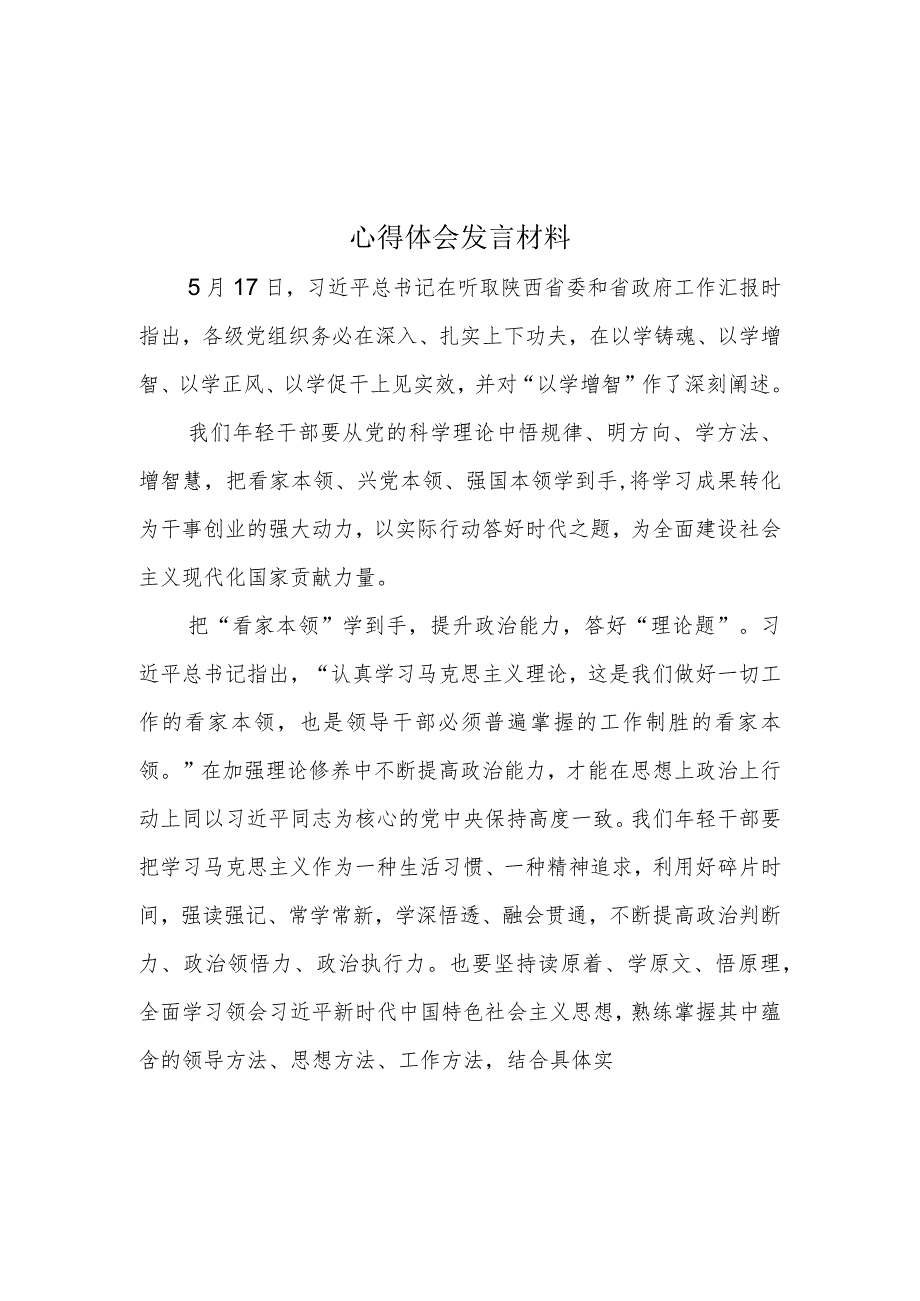 心得体会发言材料
5月17日，习近平总书记在听取陕西省委和省政府工作汇报时
指出，各级党组织务必在深入、扎实上下功夫，在以学铸魂、以学增
智、以学正风、以学促干上见实效，并对“以学增智”作了深刻阐述。
我们年轻干部要从党的科学理论中悟规律、明方向、学方法、
增智慧，把看家本领、兴党本领、强国本领学到手,将学习成果转化
为干事创业的强大动力，以实际行动答好时代之题，为全面建设社会
主义现代化国家贡献力量。
把“看家本领”学到手，提升政治能力，答好“理论题”。习
近平总书记指出，“认真学习马克思主义理论，这是我们做好一切工
作的看家本领，也是领导干部必须普遍掌握的工作制胜的看家本
领。”在加强理论修养中不断提高政治能力，才能在思想上政治上行
动上同以习近平同志为核心的党中央保持高度一致。我们年轻干部要
把学习马克思主义作为一种生活习惯、一种精神追求，利用好碎片时
间，强读强记、常学常新，学深悟透、融会贯通，不断提高政治判断
力、政治领悟力、政治执行力。也要坚持读原着、学原文、悟原理，
全面学习领会习近平新时代中国特色社会主义思想，熟练掌握其中蕴
含的领导方法、思想方法、工作方法，结合具体实